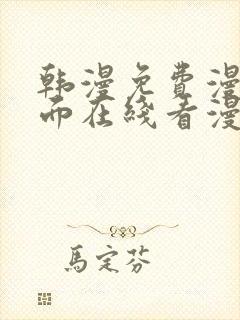 韩漫免费漫
而在线看漫
馬定芬